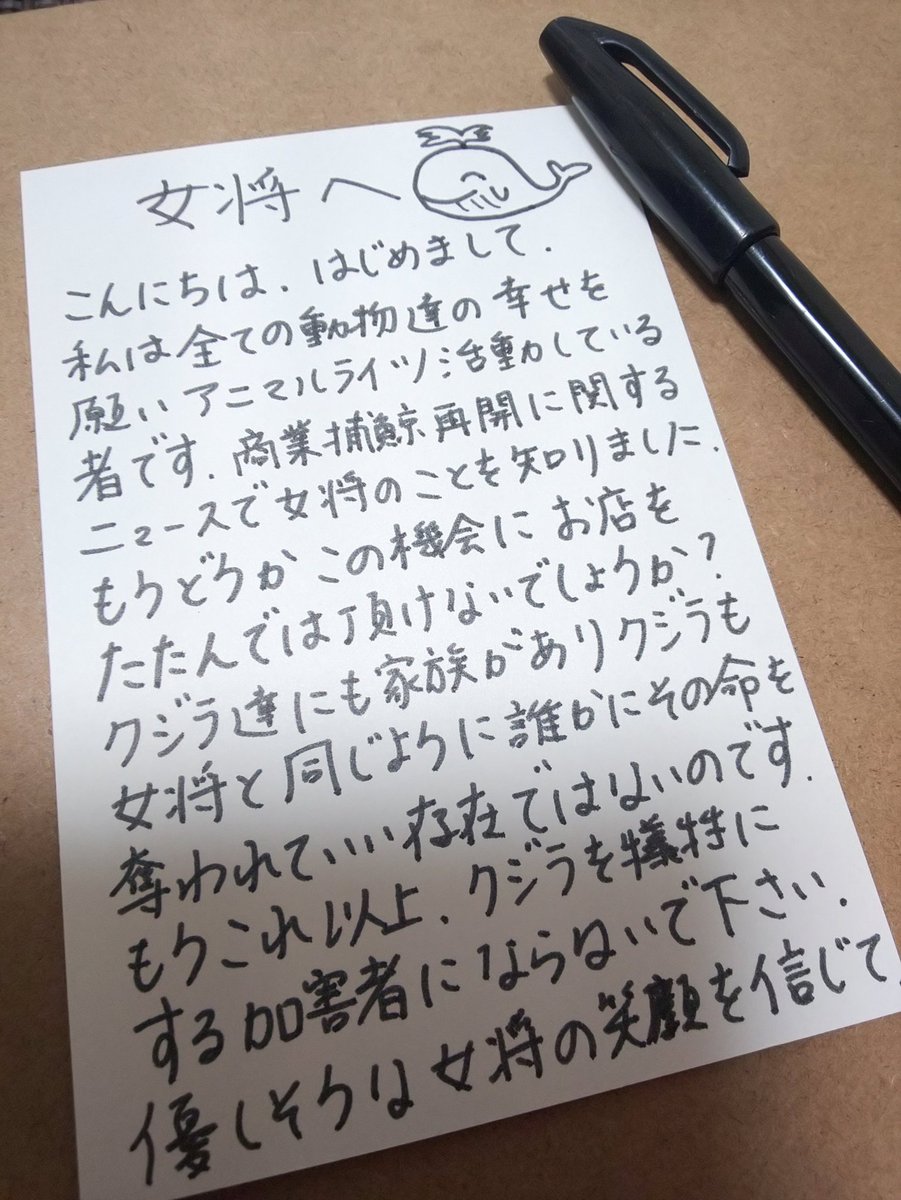 女将へ
こんにちは．はじめまして．
私は全ての動物達の幸せを
願いアニマルライツ活動している
者です．商業捕鯨再開に関する
ニュースで女将のことを知りました．
もうどうかこの機会にお店を
たたんでは頂けないでしょうか？
クジラ達にも家族がありクジラも
女将と同じように誰かにその命を
奪われていい存在ではないのです．
もうこれ以上、クジラを犠牲に
する加害者にならないで下さい．
優しそうな女将の笑顔を信じて．